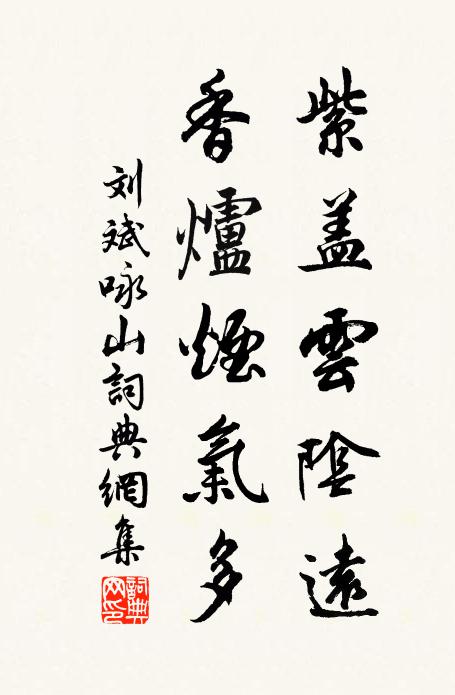 紫盖雲陰遠
香爐煙氣多
刘斌咏山詞典網集
詞典网印